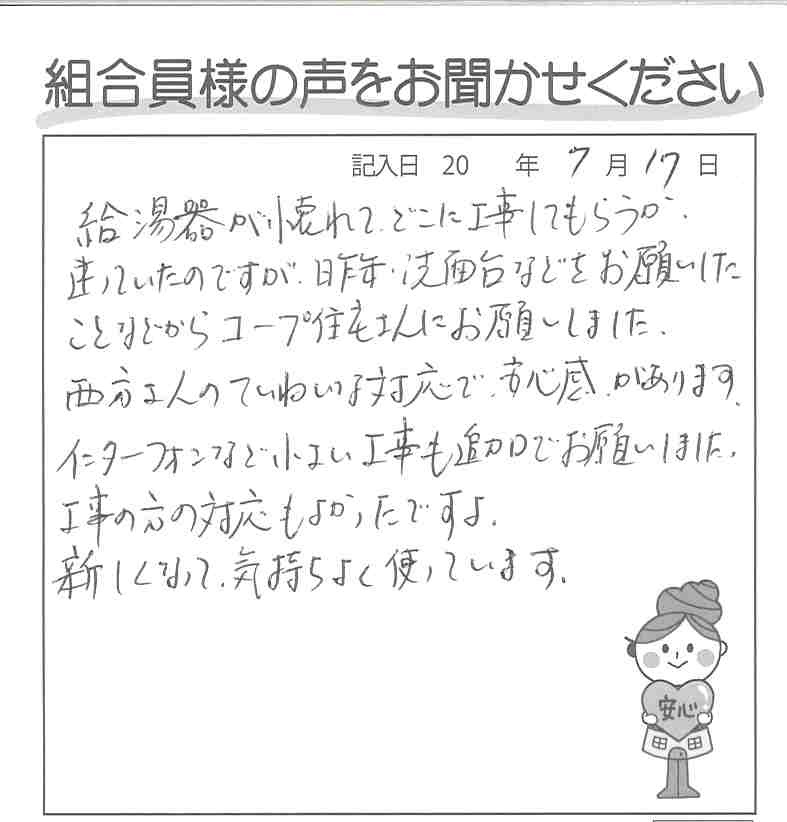 組合員様の声をお聞かせください
記入日 20 年 7月17日
給湯器が壊れて、どこに工事してもらうか、
迷っていたのですが、昨年、洗面台などをお願いした
ことなどからコープ住宅さんにお願いしました。
西方さんのていねいな対応で、安心感があります。
インターフォンなど小さい工事も追加でお願いしました。
工事の方の対応もよかったですよ。
新しくなって、気持ちよく使っています。
安心